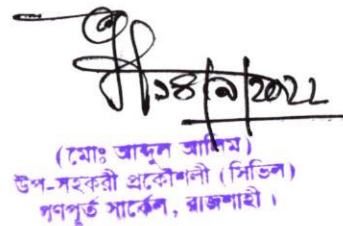 ১৪|৯|২০২২
(মোঃ আব্দুল আলিম)
উপ-সহকরী প্রকৌশলী (সিভিল)
গণপূর্ত সার্কেল, রাজশাহী।